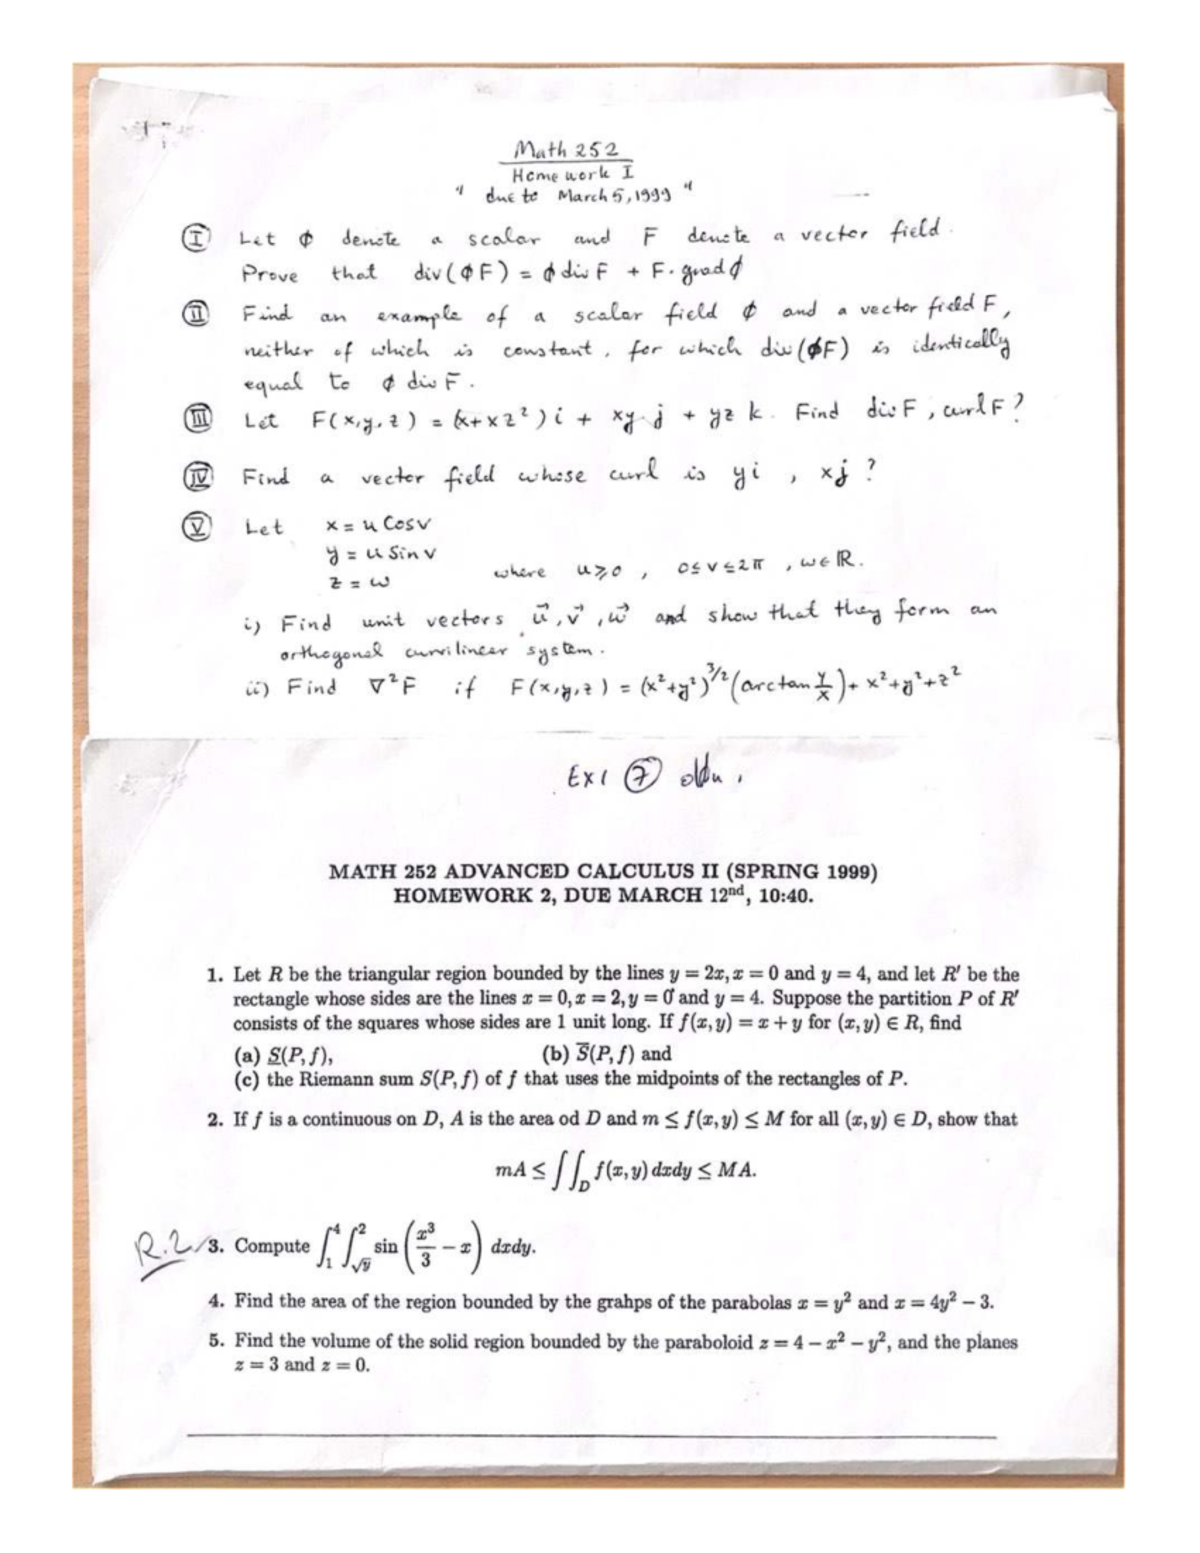 Math 252
Homework I
" due to March 5, 1999 "
(I) Let ϕ denote a scalar and F denote a vector field.
Prove that div(ϕF) = ϕ div F + F. grad ϕ
(II) Find an example of a scalar field ϕ and a vector field F,
neither of which is constant, for which div(ϕF) is identically
equal to ϕ div F.
(III) Let F(x,y,z) = (x+xz²)i + xy j + yz k. Find div F, curl F?
(IV) Find a vector field whose curl is yi , xj ?
(V) Let x = u Cosv
y = u Sin v
z = w where u⩾0 , 0≤v≤2π , w∈ℝ.
i) Find unit vectors u⃗, v⃗, w⃗ and show that they form an
orthogonal curvilinear system.
ii) Find ∇²F if F(x,y,z) = (x²+y²)^{3/2}(arctan y/x) + x²+y²+z²
Ex 1 (7)
MATH 252 ADVANCED CALCULUS II (SPRING 1999)
HOMEWORK 2, DUE MARCH 12nd, 10:40.
1. Let R be the triangular region bounded by the lines y = 2x, x = 0 and y = 4, and let R′ be the
rectangle whose sides are the lines x = 0, x = 2, y = 0 and y = 4. Suppose the partition P of R′
consists of the squares whose sides are 1 unit long. If f(x, y) = x + y for (x, y) ∈ R, find
(a) S̲(P, f), (b) S̅(P, f) and
(c) the Riemann sum S(P, f) of f that uses the midpoints of the rectangles of P.
2. If f is a continuous on D, A is the area od D and m ≤ f(x, y) ≤ M for all (x, y) ∈ D, show that
mA ≤ ∫∫_D f(x, y) dxdy ≤ MA.
R.2 3. Compute ∫_1^4 ∫_{√y}^2 sin (x³/3 − x) dxdy.
4. Find the area of the region bounded by the grahps of the parabolas x = y² and x = 4y² − 3.
5. Find the volume of the solid region bounded by the paraboloid z = 4 − x² − y², and the planes
z = 3 and z = 0.